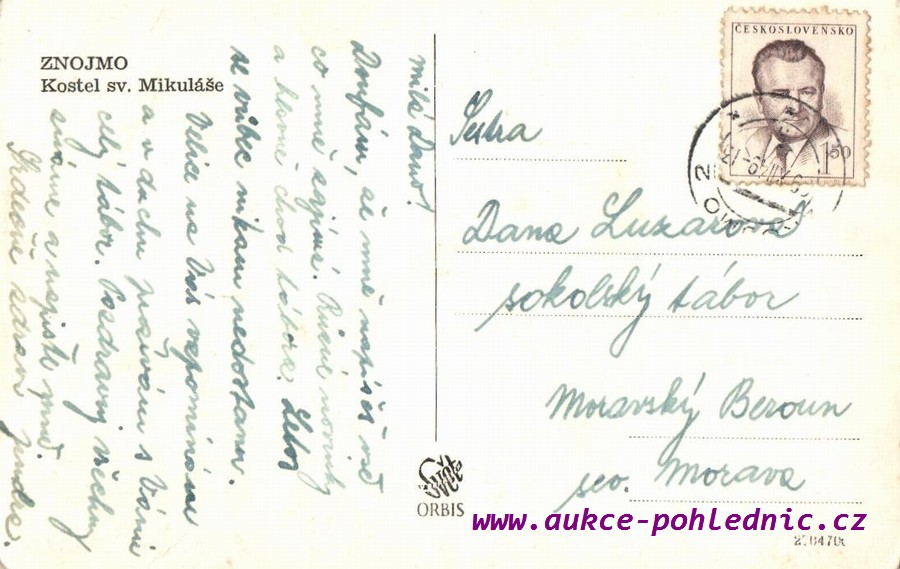 ZNOJMO
Kostel sv. Mikuláše
milá Dano!
Doufám, že mně napíšeš vše
co mně zajímá. Různé novinky
a hlavně chod tábora. Letos
se vůbec nikam nedostanu.
Velice na Vás vzpomínám
a v duchu prožívám s Vámi
celý tábor. Pozdravuj všechny
známé a napište
Srdečně zdraví Jindra.
ČESKOSLOVENSKO
1.50
Sestra
Dana Luzarová
sokolský tábor
Moravský Beroun
sev. Morava
ORBIS
www.aukce-pohlednic.cz